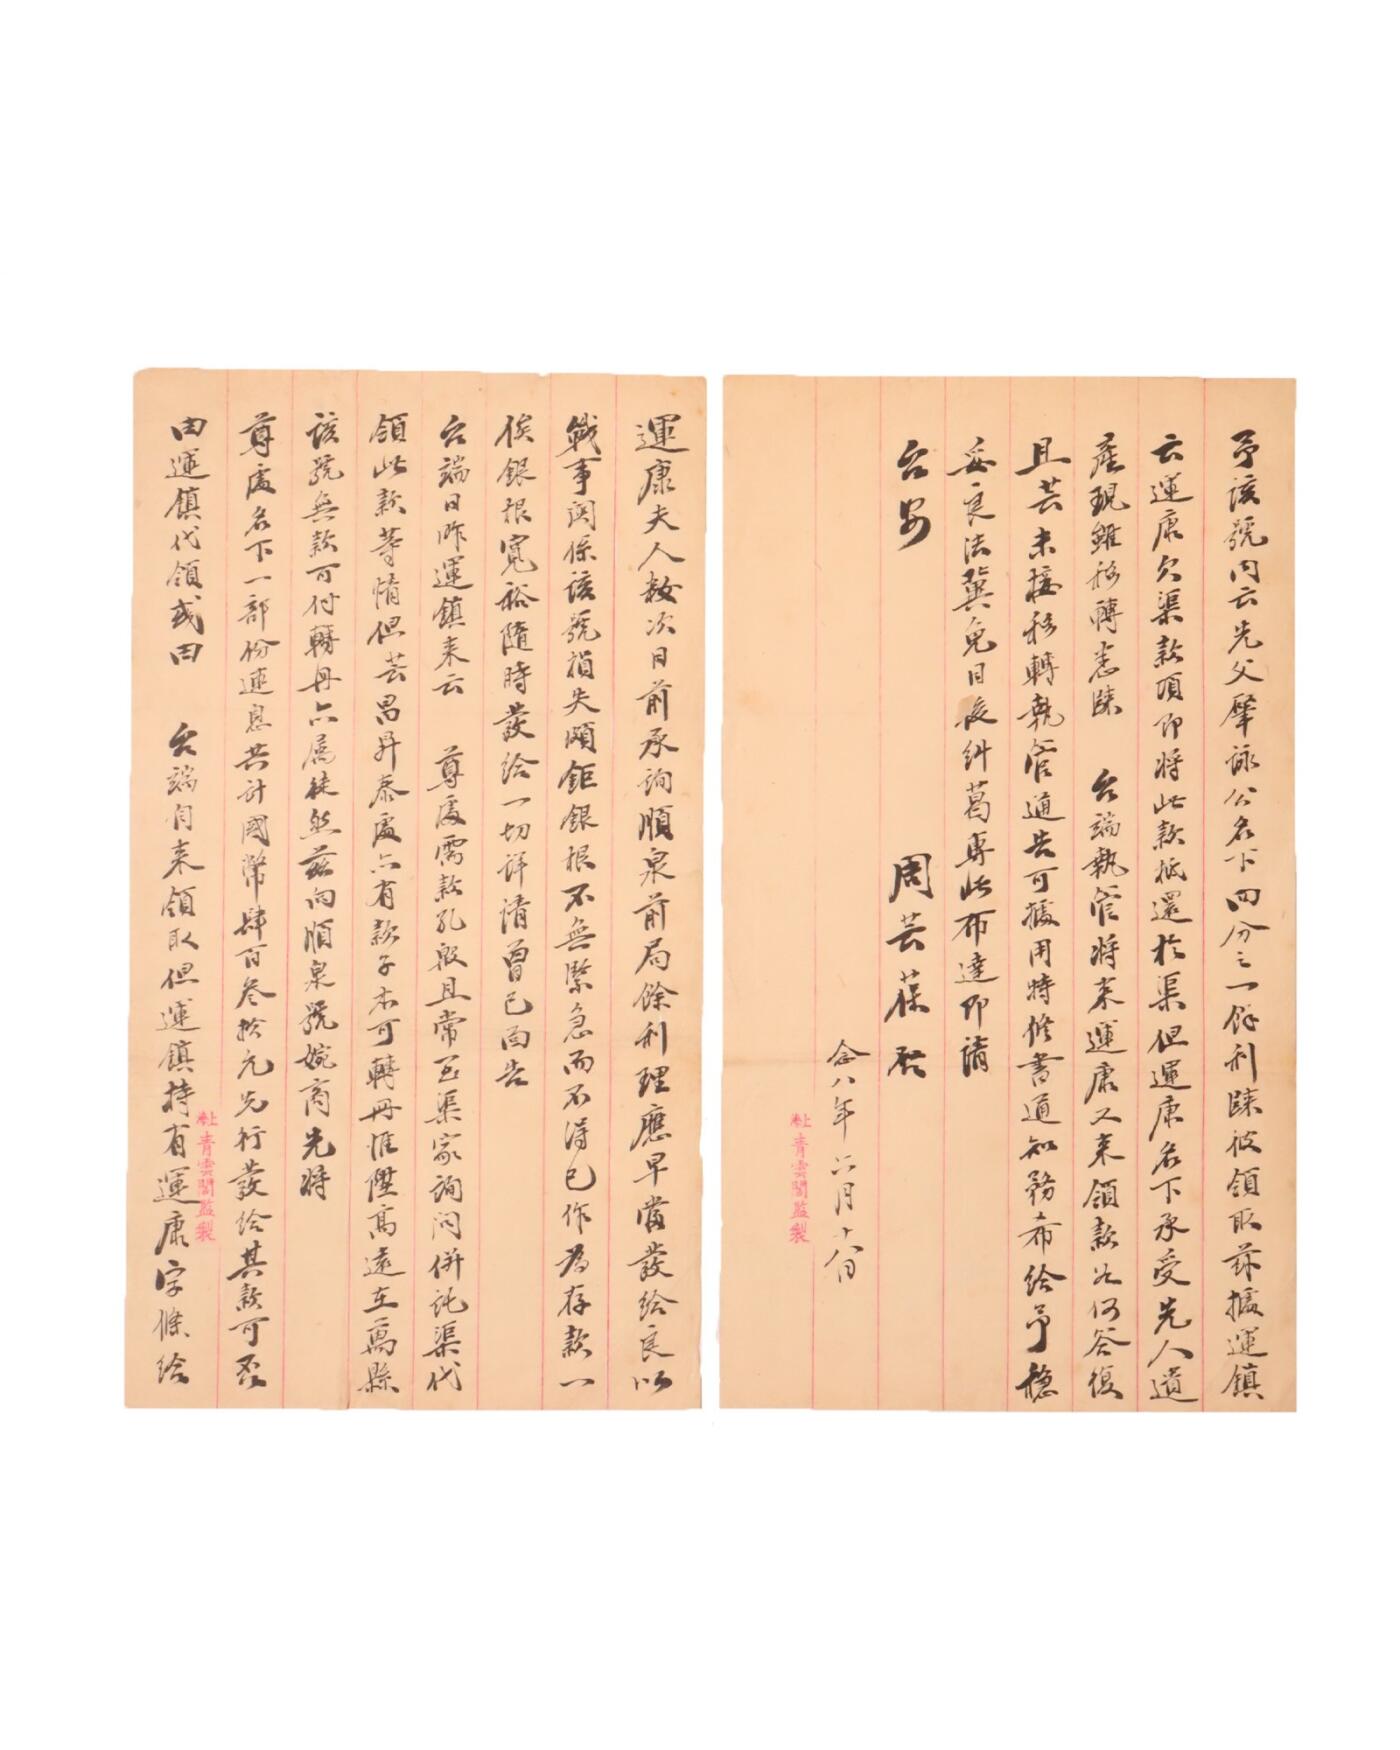 運康夫人敬次日前承詢順泉前局餘利理應早當發給良以
戰事関係該號損失頗鉅銀根不無緊急而不得已作為存款一
俟銀根寬裕隨時發給一切詳情曾已面告
台端日昨運鎮来云 尊處需款孔殷且常至渠家詢问併託渠代
領此款等情但芸昌昇泰處亦有款子本可轉冊惟陞高遠在萬縣
該號無款可付轉冊亦属徒然茲向順泉號婉商先將
尊處名下一部份連息共計國幣肆百叁拾元先行發給其款可否
由運鎮代領或由 台端自来領取但運鎮持有運康字條給
予該號内云先父肇詠公名下四分之一餘利疎彼領取茲據運鎮
云運康欠渠款項即將此款抵還於渠但運康名下承受先人遺
產現雖移轉悉疎 台端執管將来運康又来領款如何答復
且芸未接移轉執管通告可據用特修書通知務希給予穩
妥良法冀免日後纠葛專此布達即請
台安
周芸葆啟
念八年六月十八日
青雲閣監製
青雲閣監製